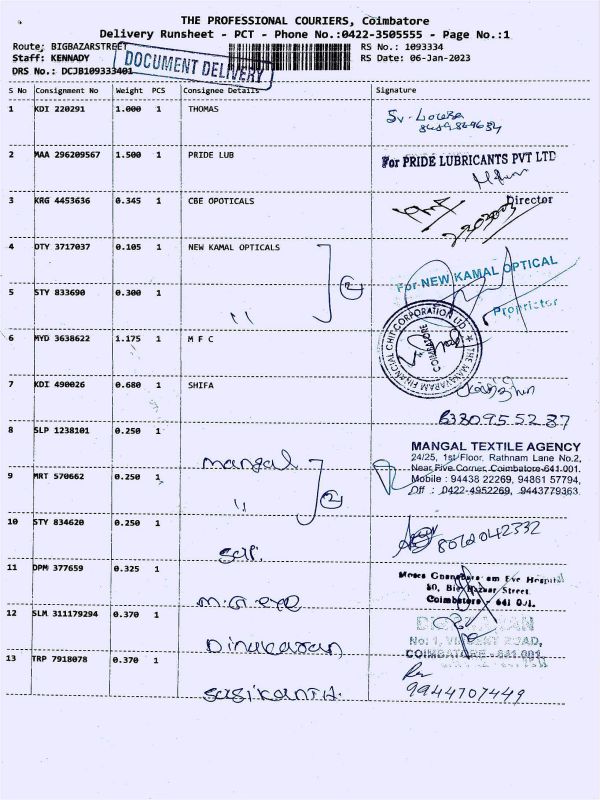 THE PROFESSIONAL COURIERS, Coimbatore
Delivery Runsheet - PCT - Phone No.:0422-3505555 - Page No.:1
Route: BIGBAZARSTREET
RS No.: 1093334
Staff: KENNADY
RS Date: 06-Jan-2023
DRS No.: DCJB109333401
DOCUMENT DELIVERY
S No Consignment No Weight PCS Consignee Details Signature
1 KDI 220291 1.000 1 THOMAS
2 MAA 296209567 1.500 1 PRIDE LUB
For PRIDE LUBRICANTS PVT LTD
Director
3 KRG 4453636 0.345 1 CBE OPOTICALS
4 DTY 3717037 0.105 1 NEW KAMAL OPTICALS
For NEW KAMAL OPTICAL
Proprietor
5 STY 833690 0.300 1 "
2
6 MYD 3638622 1.175 1 M F C
COIMBATORE
7 KDI 490026 0.680 1 SHIFA
8 SLP 1238101 0.250 1 mangal
MANGAL TEXTILE AGENCY
24/25, 1st Floor, Rathnam Lane No.2,
Near Five Corner, Coimbatore-641 001.
Mobile : 94438 22269, 94861 57794,
Off : 0422-4952269, 9443779363
9 MRT 570662 0.250 1 "
2
10 STY 834620 0.250 1
8072042332
11 DPM 377659 0.325 1 m.g.eye
Eye Hospital
80, Big Bazaar Street
Coimbatore - 641 001.
12 SLM 311179294 0.370 1 Dinakaran
COIMBATORE - 641 001
13 TRP 7918078 0.370 1 sasikanth.
9944707449